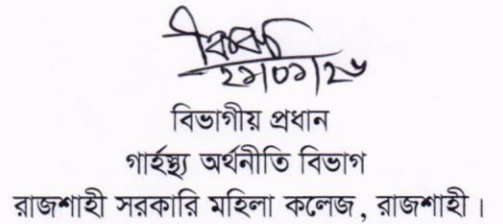 ২১|০১|২৬
বিভাগীয় প্রধান
গার্হস্থ্য অর্থনীতি বিভাগ
রাজশাহী সরকারি মহিলা কলেজ, রাজশাহী।